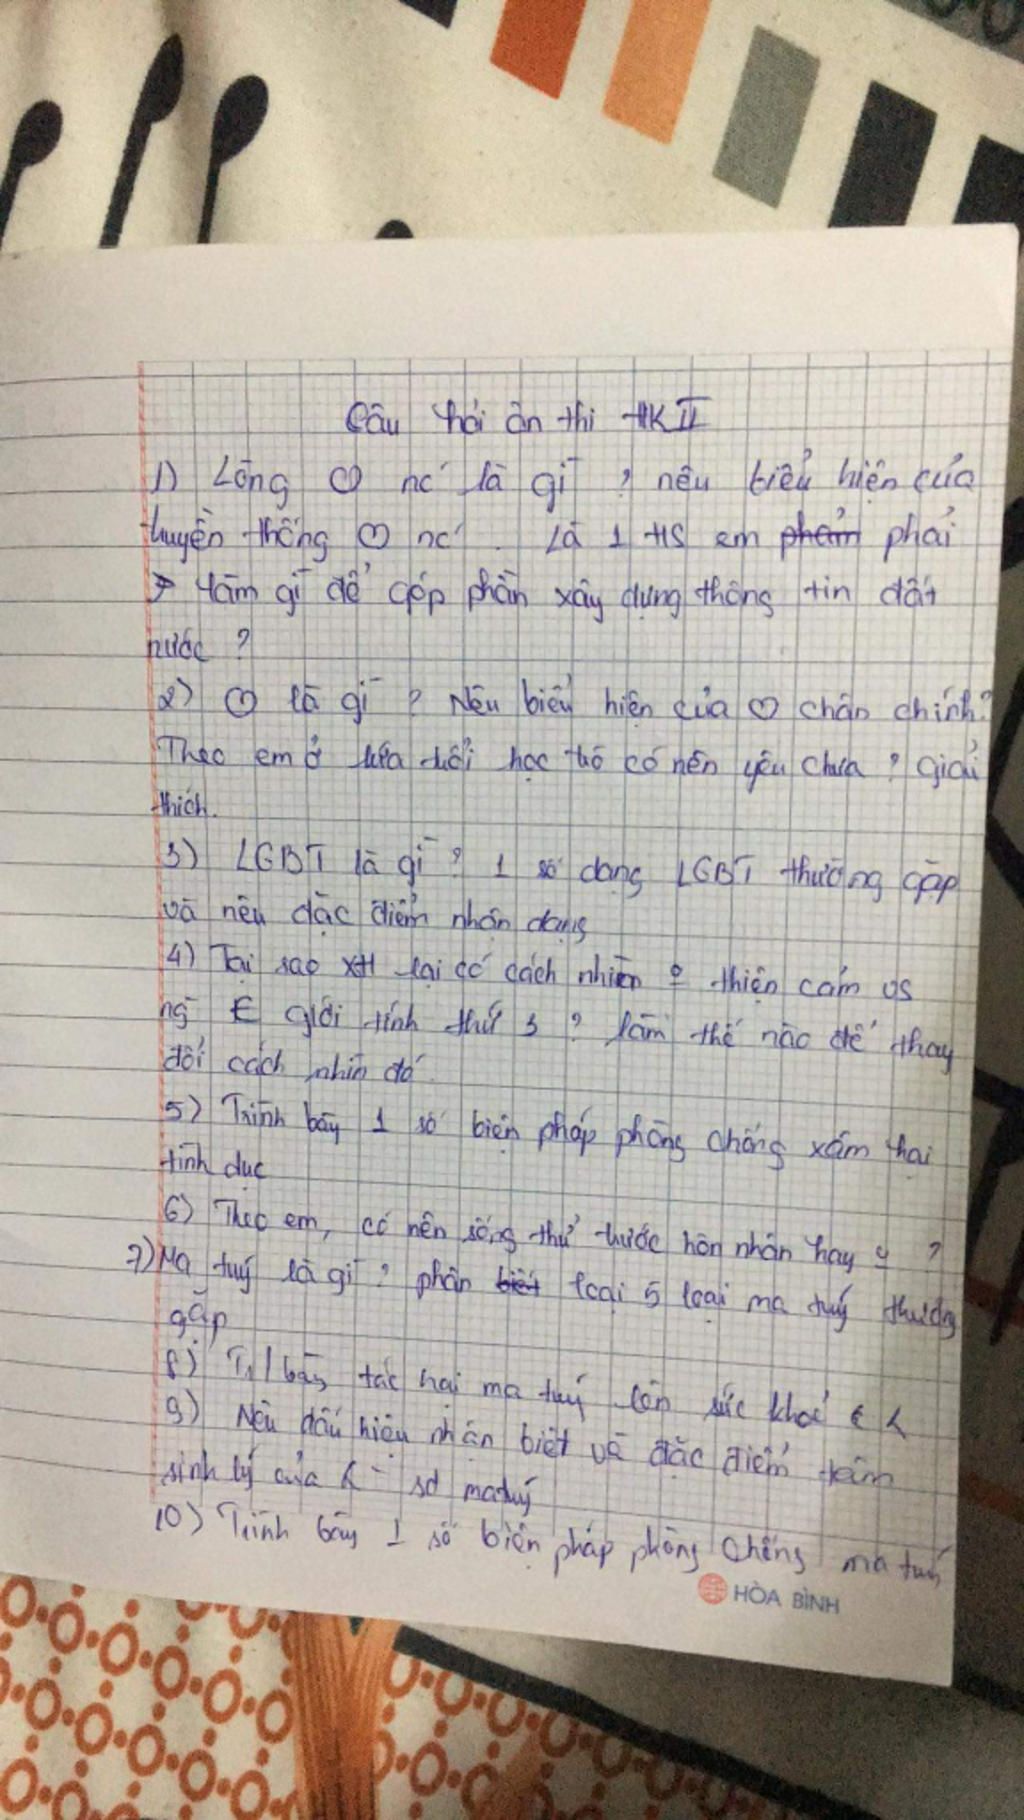 Câu hỏi ôn thi HKII
1) Lòng ♡ nc' là gì ? nêu biểu hiện của
truyền thống ♡ nc'. Là 1 HS em phải
làm gì để góp phần xây dựng thông tin đất
nước ?
2) ♡ là gì ? Nêu biểu hiện của ♡ chân chính?
Theo em ở lứa tuổi học trò có nên yêu chưa ? giải
thích.
3) LGBT là gì ? 1 số dạng LGBT thường gặp
và nêu đặc điểm nhận dạng
4) Tại sao XH lại có cách nhìn thiện cảm vs
ng` giới tính thứ 3 ? làm thế nào để thay
đổi cách nhìn đó.
5) Trình bày 1 số biện pháp phòng chống xâm hại
tình dục
6) Theo em, có nên sống thử trước hôn nhân hay ?
7) Ma tuý là gì ? phân loại 5 loại ma tuý thường
gặp
8) Tr/bày tác hại ma tuý lên sức khoẻ
9) Nêu dấu hiệu nhận biết và đặc điểm tâm
sinh lý của sd ma tuý
10) Trình bày 1 số biện pháp phòng chống ma tuý
HÒA BÌNH